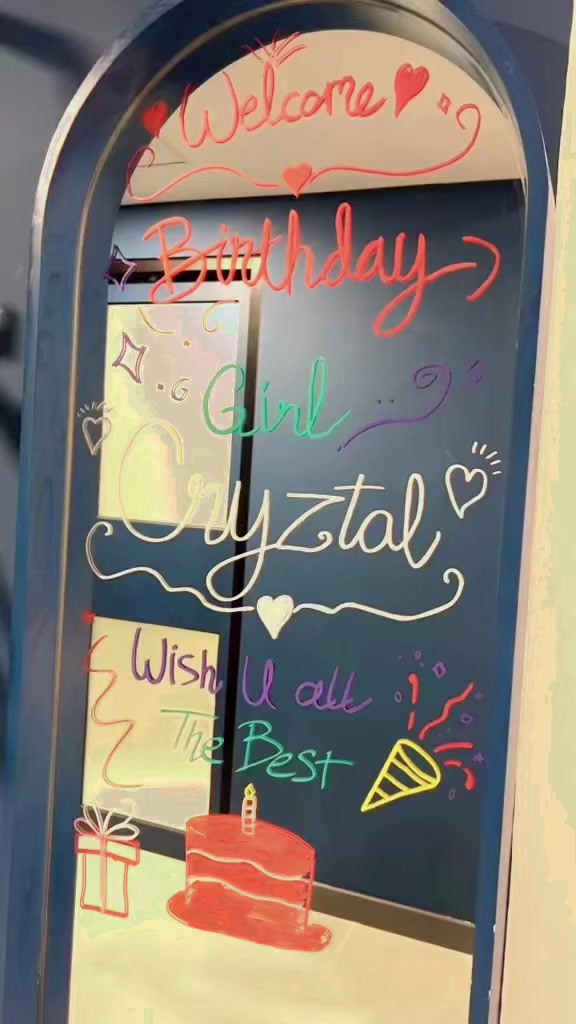 Welcome
Birthday
Girl
Cryztal
Wish U all
The Best